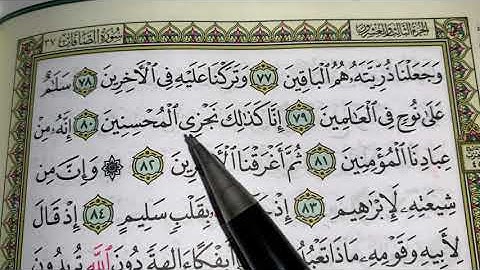 الجزء الثالث والعشرون سورة الصافات ٣٧
وَجَعَلْنَا ذُرِّيَّتَهُۥ هُمُ ٱلْبَاقِينَ ٧٧ وَتَرَكْنَا عَلَيْهِ فِى ٱلْـَٔاخِرِينَ ٧٨ سَلَـٰمٌ
عَلَىٰ نُوحٍ فِى ٱلْعَـٰلَمِينَ ٧٩ إِنَّا كَذَٰلِكَ نَجْزِى ٱلْمُحْسِنِينَ ٨٠ إِنَّهُۥ مِنْ
عِبَادِنَا ٱلْمُؤْمِنِينَ ٨١ ثُمَّ أَغْرَقْنَا ٨٢ ۞ وَإِنَّ مِن
شِيعَتِهِۦ لَإِبْرَٰهِيمَ ٨٣ بِقَلْبٍ سَلِيمٍ ٨٤ إِذْ قَالَ
لِأَبِيهِ وَقَوْمِهِۦ مَاذَا أَئِفْكًا ءَالِهَةً دُونَ ٱللَّهِ تُرِيدُونَ